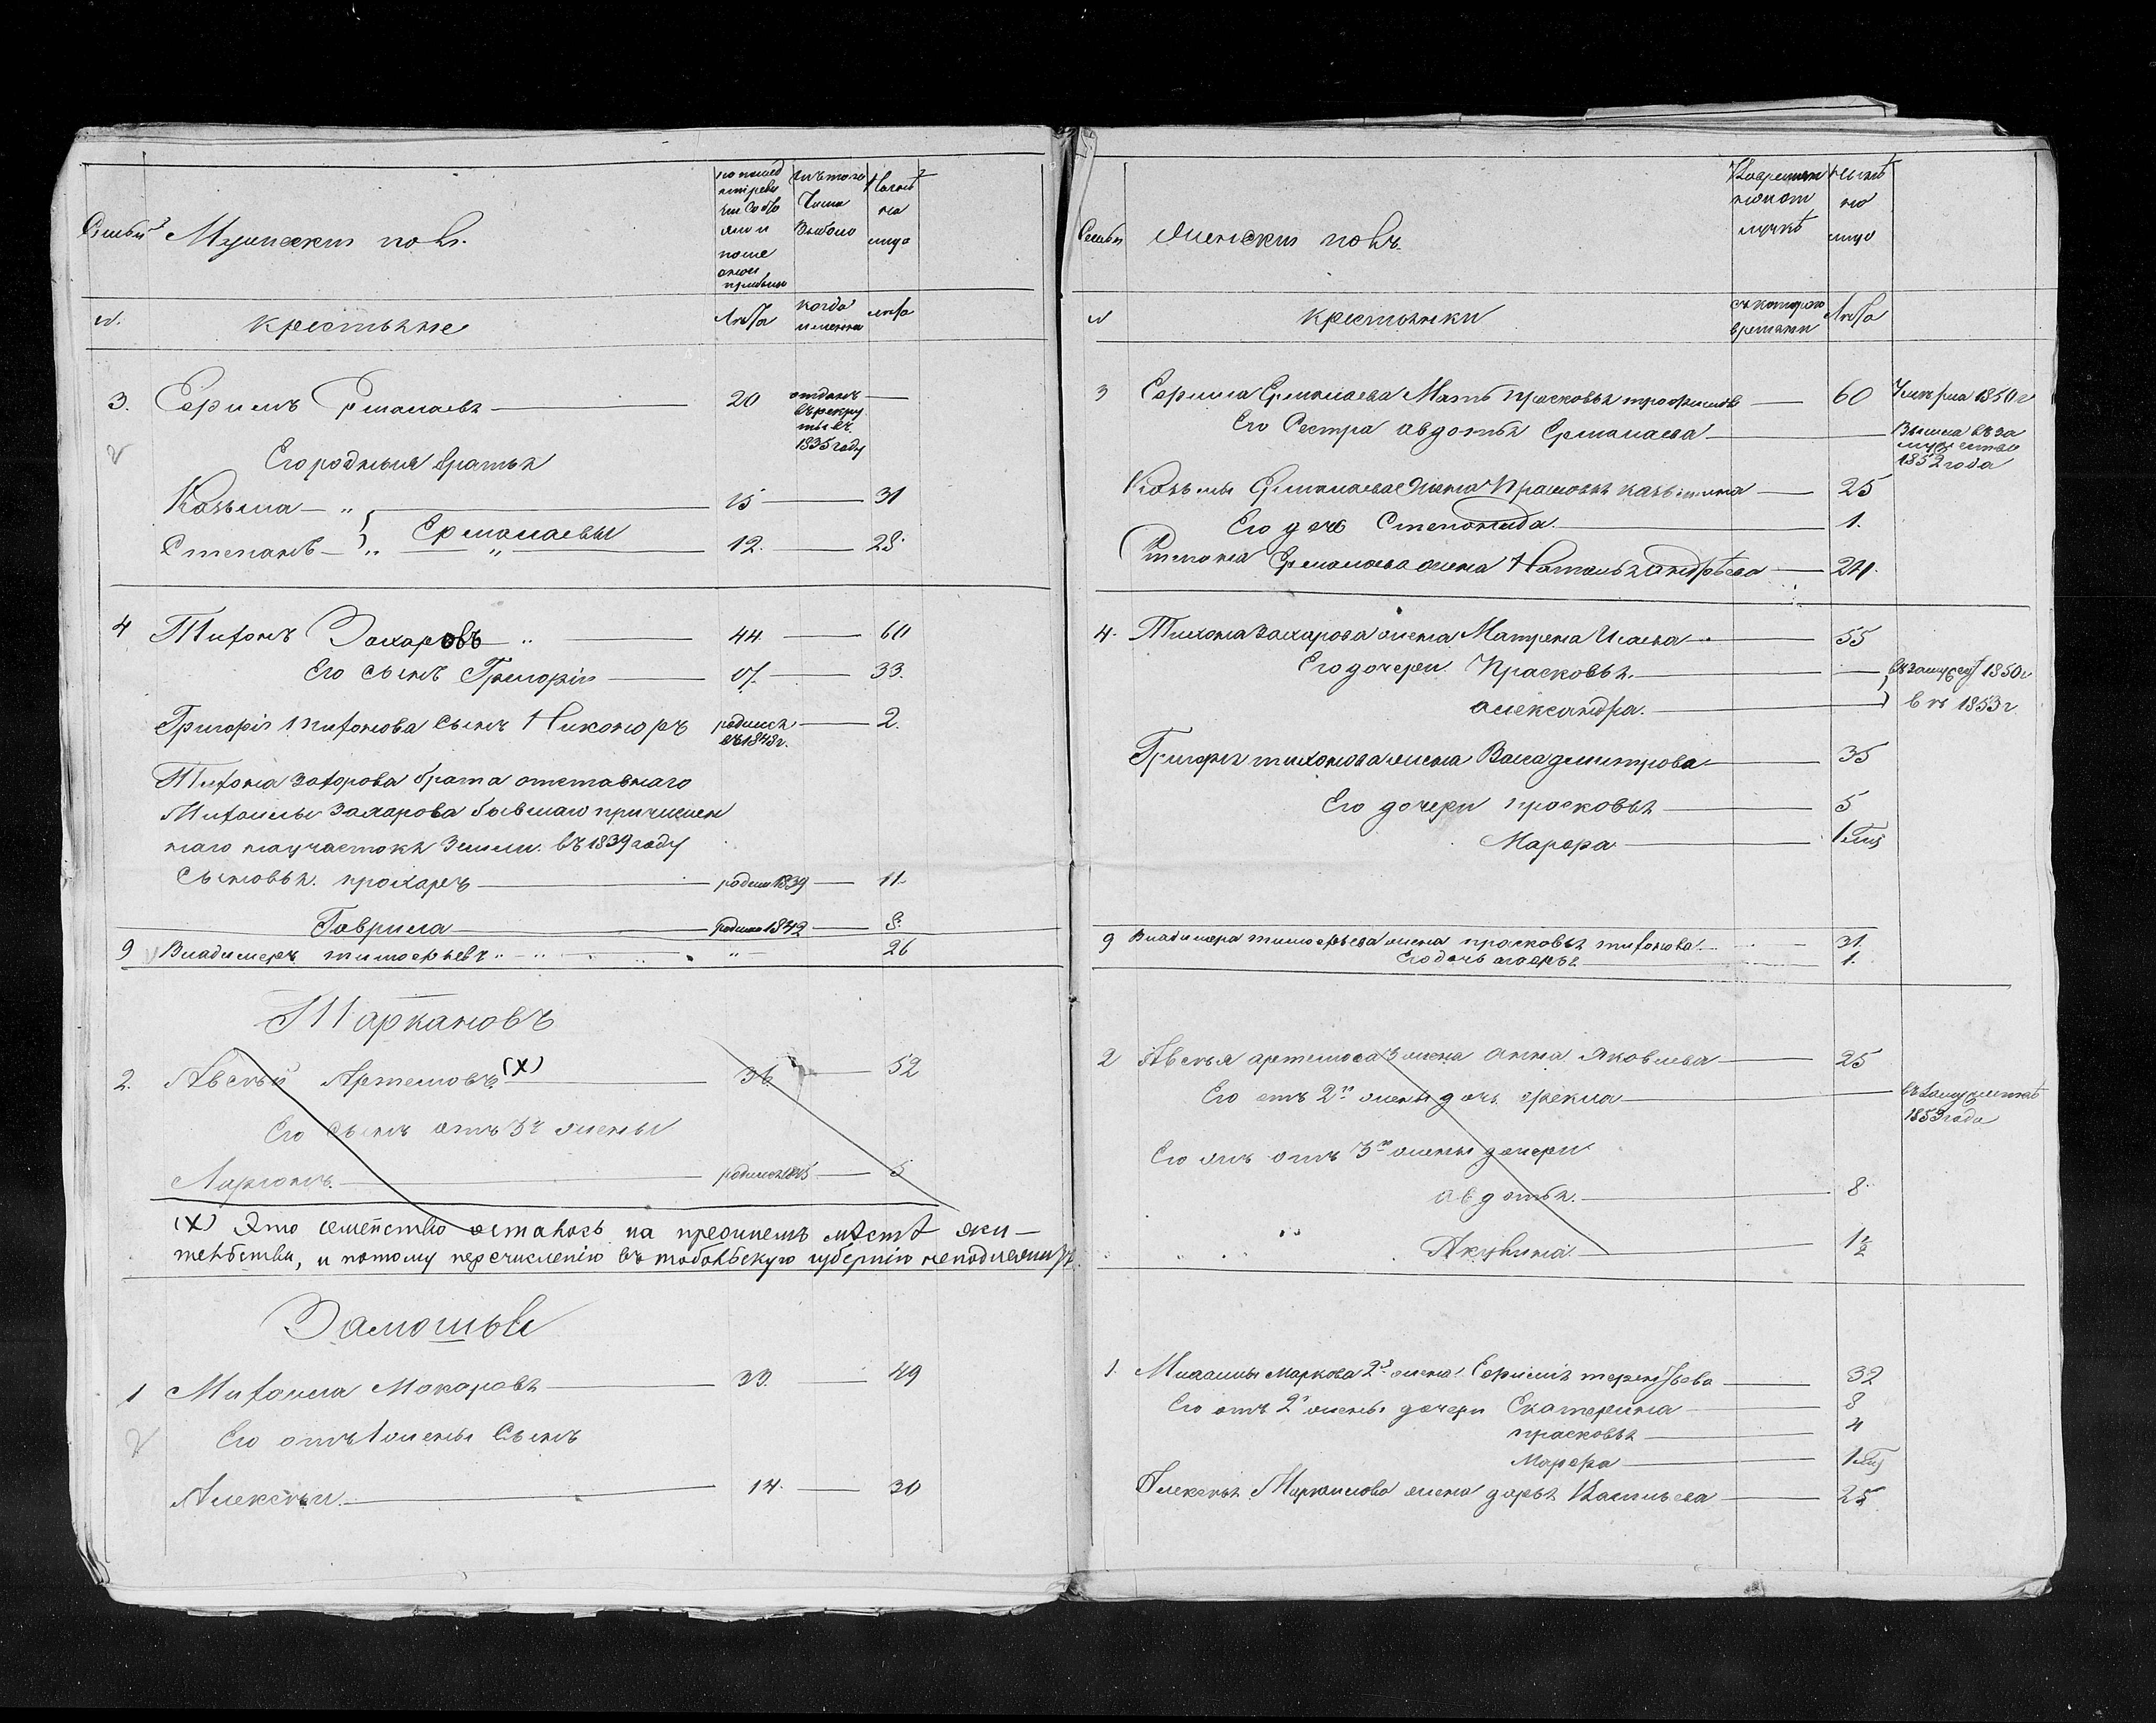 Семьи Мужескій полъ.
по послед
ней реви
зіи состо
яли и
после
оной
прибыло
Изъ того
числа
выбыло
Налич
на
лицо
№.
крестьяне
Лѣта
когда
именно
лѣта
3. Ефимъ Ермолаевъ 20
отданъ
въ рекру
ты въ
1835 году
Его родныя братья
Козьма 15 31
Степанъ Ермолаевы 12. 28.
4 Тихонъ Захаровъ 44. 60
Его сынъ Григорій 17. 33.
Григорія Тихонова сынъ Никоноръ 2.
родился
въ 1848 г.
Тихона Захарова брата отставнаго
Михайлы Захарова бывшаго причислен
наго на участокъ земли въ 1839 году
сыновья. прохаръ родил 1839 11.
Гаврила родил 1842 8.
9 Владимеръ тимофѣевъ 26
Таркановъ
2. Авсѣй Артемовъ (X) 36 52
Его сынъ отъ 3й жены
Ларіонъ. родился 1845 5
(X) Это семейство осталось на прежнемъ мѣстѣ жи-
тельства, и потому перечисленію въ тобольскую губернію неподлежитъ.
Замошье
1 Михайла Макаровъ 33. 49
Его отъ 1 жены сынъ
Алексѣй. 14. 30
Семьи Женскій полъ.
Во времен
ной от
лучкѣ
На
лицо
№
крестьянки
съ котораго
времени
Лѣта
3 Ефима Ермолаева Мать Прасковья трофимова 60 Умерла 1850 г
Его Сестра авдотья Ермолаева
Вышла въ за
мужество
1852 года
Козьмы Ермолаева жена Прасковья казьмина 25
Его дочь Степонида 1.
Степана Ермолаева жена Наталья андрѣева 24.
4. Тихона Захарова жена Матрена Исаева 55
Его дочери Прасковья. въ замужест 1850 г
александра. въ 1853 г
Григорія тихонова жена Васса дмитрова 35
Его дочери прасковья 5
Марфа 1
9 Владимера тимофѣева жена прасковья тихонова 31.
Его дочь агафья. 1.
2 Авсѣя артемова 3 жена анна Яковлева 25
Его отъ 2й жены дочь фекла
въ замужествѣ
1853 года
Его жъ отъ 3й жены дочери
авдотья. 8.
Акулина 1½
1. Михаилы Маркова 2я жена Ефимія терентьева 32
Его отъ 2й жены дочери Екатерина 8
прасковья 4
Марфа 1
Алексѣя Михайлова жена дарья Васильева 25